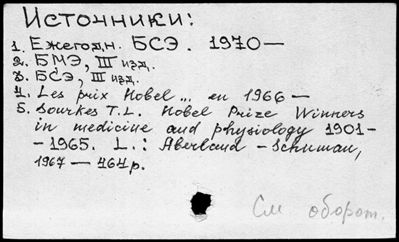 Источники:
1. Ежегодн. БСЭ. 1970—
2. БМЭ, III изд.
3. БСЭ, III изд.
4. Les prix Nobel ... en 1966 —
5. Sourkes T.L. Nobel Prize Winners
in medicine and physiology 1901-
-1965. L.: Aberland - Schuman,
1967 — 464 p.
См оборот.